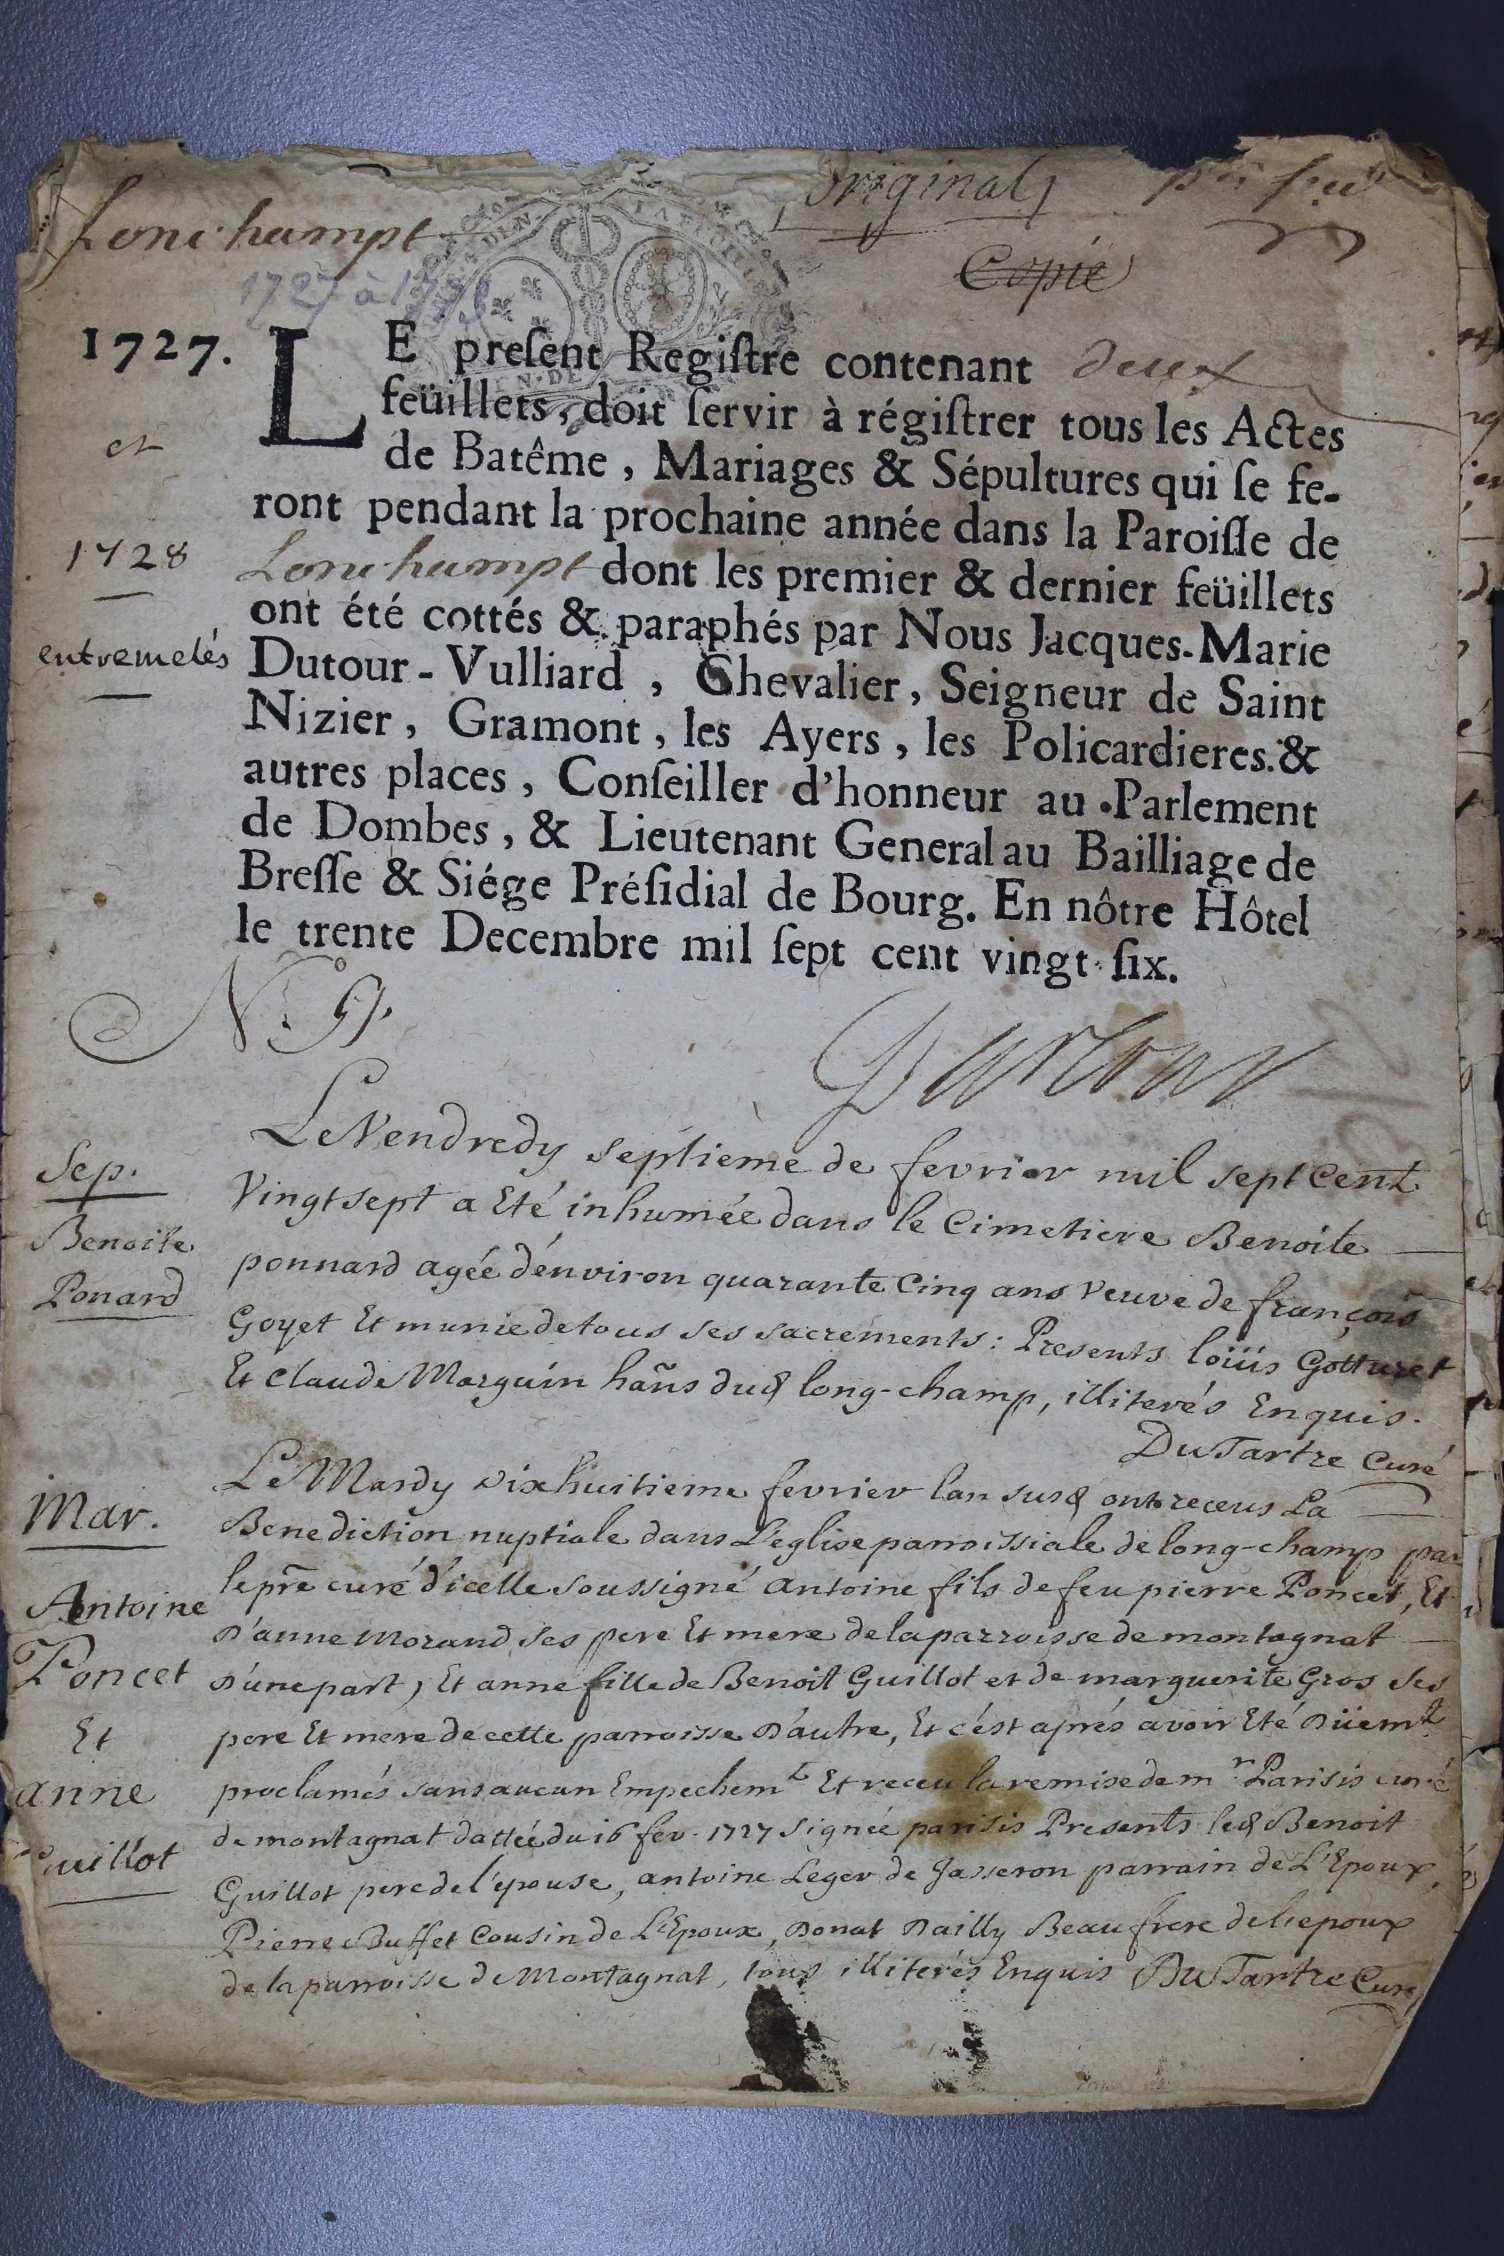 Original
Lonchampt
1727 à 1776
Copie
1727.
et
1728
entremelés
LE preſent Regiſtre contenant deux
feüillets, doit ſervir à régiſtrer tous les Actes
de Batême, Mariages & Sépultures qui ſe fe-
ront pendant la prochaine année dans la Paroiſſe de
Lonchampt dont les premier & dernier feüillets
ont été cottés & paraphés par Nous Jacques-Marie
Dutour-Vulliard, Chevalier, Seigneur de Saint
Nizier, Gramont, les Ayers, les Policardieres. &
autres places, Conſeiller d'honneur au Parlement
de Dombes, & Lieutenant General au Bailliage de
Breſſe & Siége Préſidial de Bourg. En nôtre Hôtel
le trente Decembre mil ſept cent vingt-ſix.
Sep.
Benoite
Ponard
Le Vendredy septieme de fevrier mil sept Cent
Vingt sept a Eté inhumée dans le Cimetiere Benoite
ponnard agée d'énviron quarante Cinq ans veuve de françois
Goyet Et munie de tous ses sacrements: Presents loüis Gotturet
Et Claude Morguin hañs dud long-champ, illiterés Enquis.
DuTartre Curé
Mar.
Antoine
Poncet
Et
anne
Guillot
Le Mardy dixhuitieme fevrier lan susd ont receus La
Benediction nuptiale dans L'eglise parroissiale de long-champ par
le pre curé d'icelle soussigné antoine fils de feu pierre Poncet, Et
D'anne Morand ses pere Et mere de la parroisse de montagnat
D'une part, Et anne fille de Benoit Guillot et de marguerite Gros ses
pere Et mere de cette parroisse D'autre, Et c'ést aprés avoir Eté Düemt
proclamés sans aucun Empechemt Et receu la remise de mr. Parisis curé
de montagnat dattée du 16 fev. 1727 signée parisis Presents led Benoit
Guillot pere de l'épouse, antoine Leger de Jasseron parrain de L'Epoux,
Pierre Buffet Cousin de L'Epoux, Donat Dailly Beaufrere de l'epoux
de la parroisse de Montagnat, tous illiterés Enquis DuTartre Curé